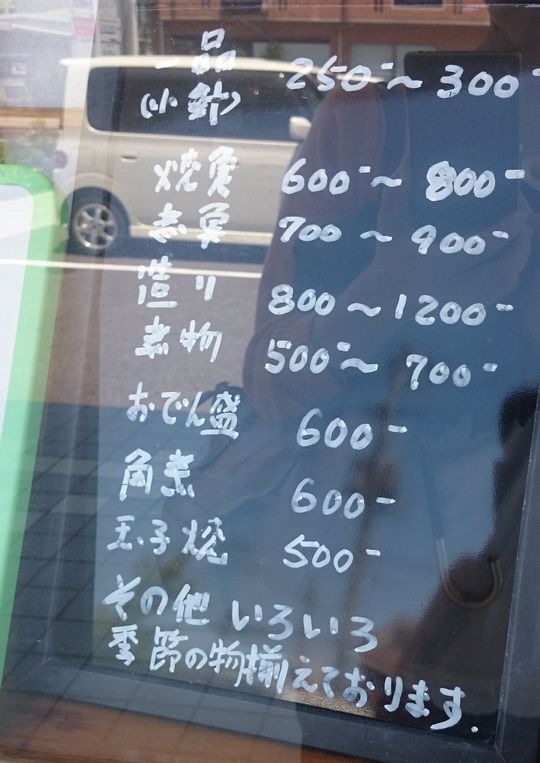 一品 250-〜300-
(小鉢)
焼魚 600-〜800-
煮魚 700〜900-
造り 800〜1200-
煮物 500-〜700-
おでん盛 600-
角煮 600-
玉子焼 500-
その他 いろいろ
季節の物揃えております.